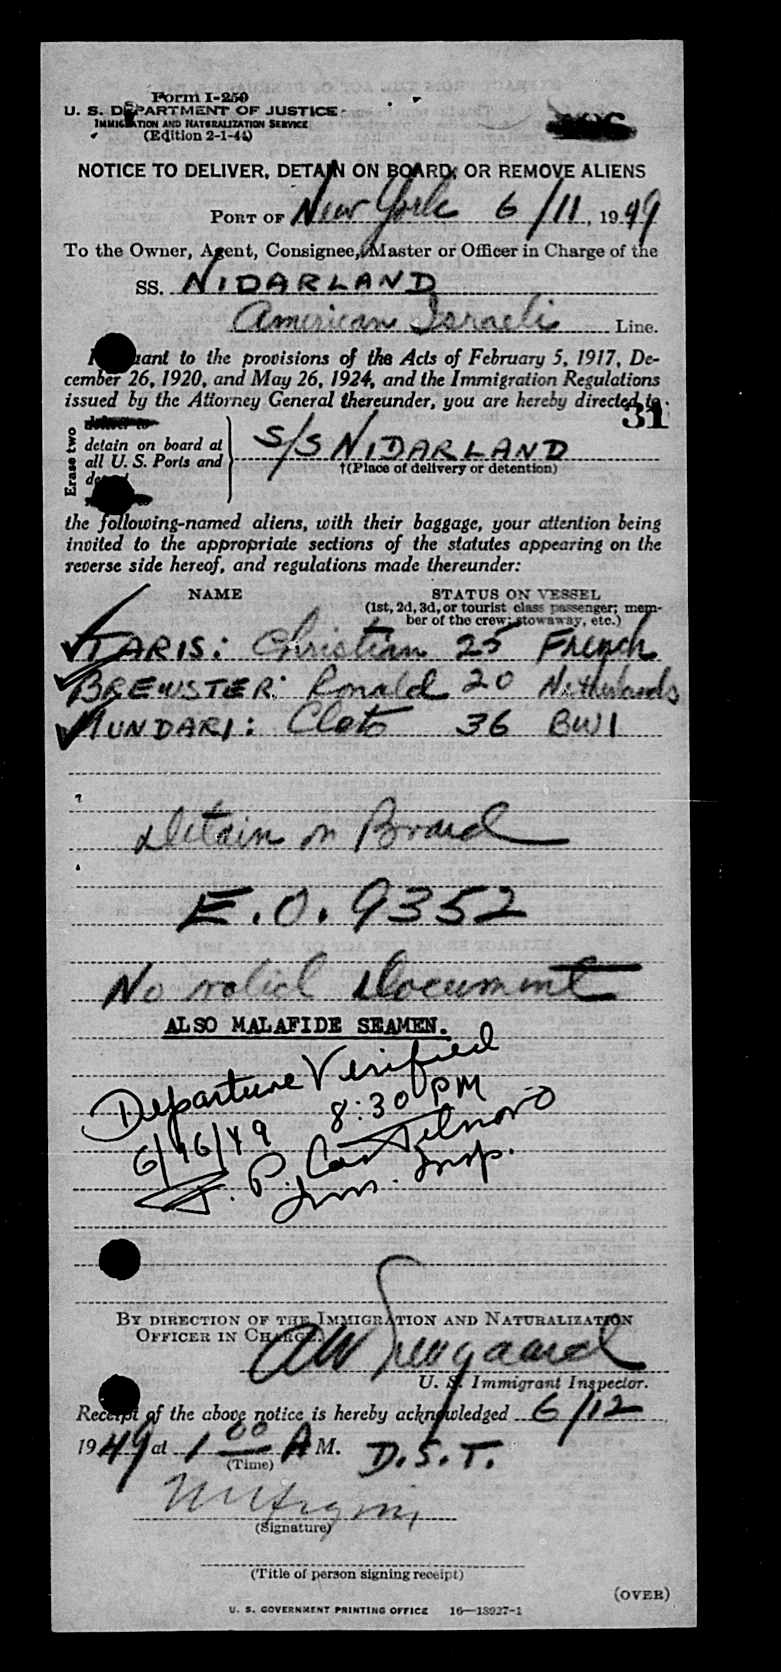 Form I-259
U. S. DEPARTMENT OF JUSTICE
IMMIGRATION AND NATURALIZATION SERVICE
(Edition 2-1-44)
NOTICE TO DELIVER, DETAIN ON BOARD, OR REMOVE ALIENS
PORT OF New York 6/11, 1949
To the Owner, Agent, Consignee, Master or Officer in Charge of the
SS. NIDARLAND
American Israeli Line.
Pursuant to the provisions of the Acts of February 5, 1917, De-
cember 26, 1920, and May 26, 1924, and the Immigration Regulations
issued by the Attorney General thereunder, you are hereby directed to
31
Erase two
deliver to
detain on board at
all U. S. Ports and
S/S NIDARLAND
†(Place of delivery or detention)
the following-named aliens, with their baggage, your attention being
invited to the appropriate sections of the statutes appearing on the
reverse side hereof, and regulations made thereunder:
NAME STATUS ON VESSEL
(1st, 2d, 3d, or tourist class passenger; mem-
ber of the crew; stowaway, etc.)
TARIS: Christian 25 French
BREWSTER: Ronald 20 Netherlands
MUNDARI: Cleto 36 BWI
Detain on Board
E.O. 9352
No valid Document
ALSO MALAFIDE SEAMEN.
Departure Verified
6/16/49 8:30 PM
J. P. Castelnovo
Imm. Insp.
BY DIRECTION OF THE IMMIGRATION AND NATURALIZATION
OFFICER IN CHARGE.
U. S. Immigrant Inspector.
Receipt of the above notice is hereby acknowledged 6/12,
1949 at 1 00 A M. D.S.T.
(Time)
(Signature)
(Title of person signing receipt)
(OVER)
U. S. GOVERNMENT PRINTING OFFICE 16—18927-1